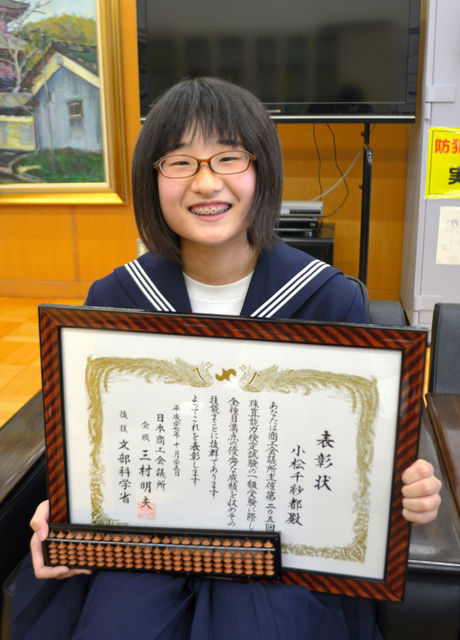 表彰状
小松千紗都殿
あなたは商工会議所主催第二〇五回
珠算能力検定試験の一級受験に際し
全種目満点の優秀な成績を収めその
技能まことに抜群であります
よってこれを表彰します
平成二十七年十月二十五日
日本商工会議所
会頭 三村明夫
後援 文部科学省
防犯
実